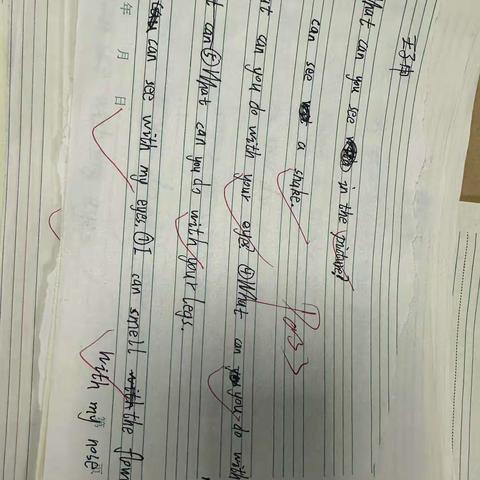 王子甫
What can you see in the picture?
can see a snake.
at can you do with your eye? ④What can you do with
t can ⑤What can you do with your legs.
can see with my eyes. ⑦I can smell the flow
with my nose
年 月 日
Pass